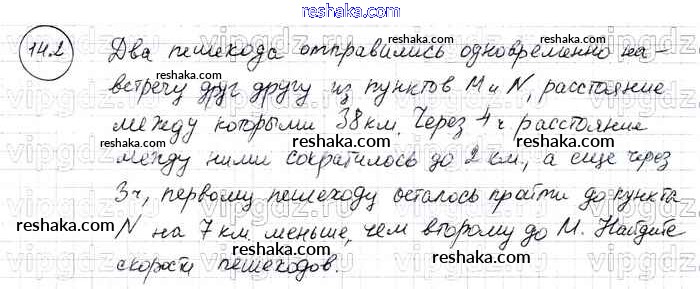 reshaka.com
14.2 Два пешехода отправились одновременно на-
reshaka.com reshaka.com
встречу друг другу из пунктов М и N, расстояние
между которыми 38 км. Через 4 ч расстояние
reshaka.com reshaka.com
между ними сократилось до 2 км, а еще через
3 ч, первому пешеходу осталось пройти до пункта
reshaka.com
N на 7 км меньше, чем второму до М. Найдите
reshaka.com reshaka.com
скорости пешеходов.
reshaka.com